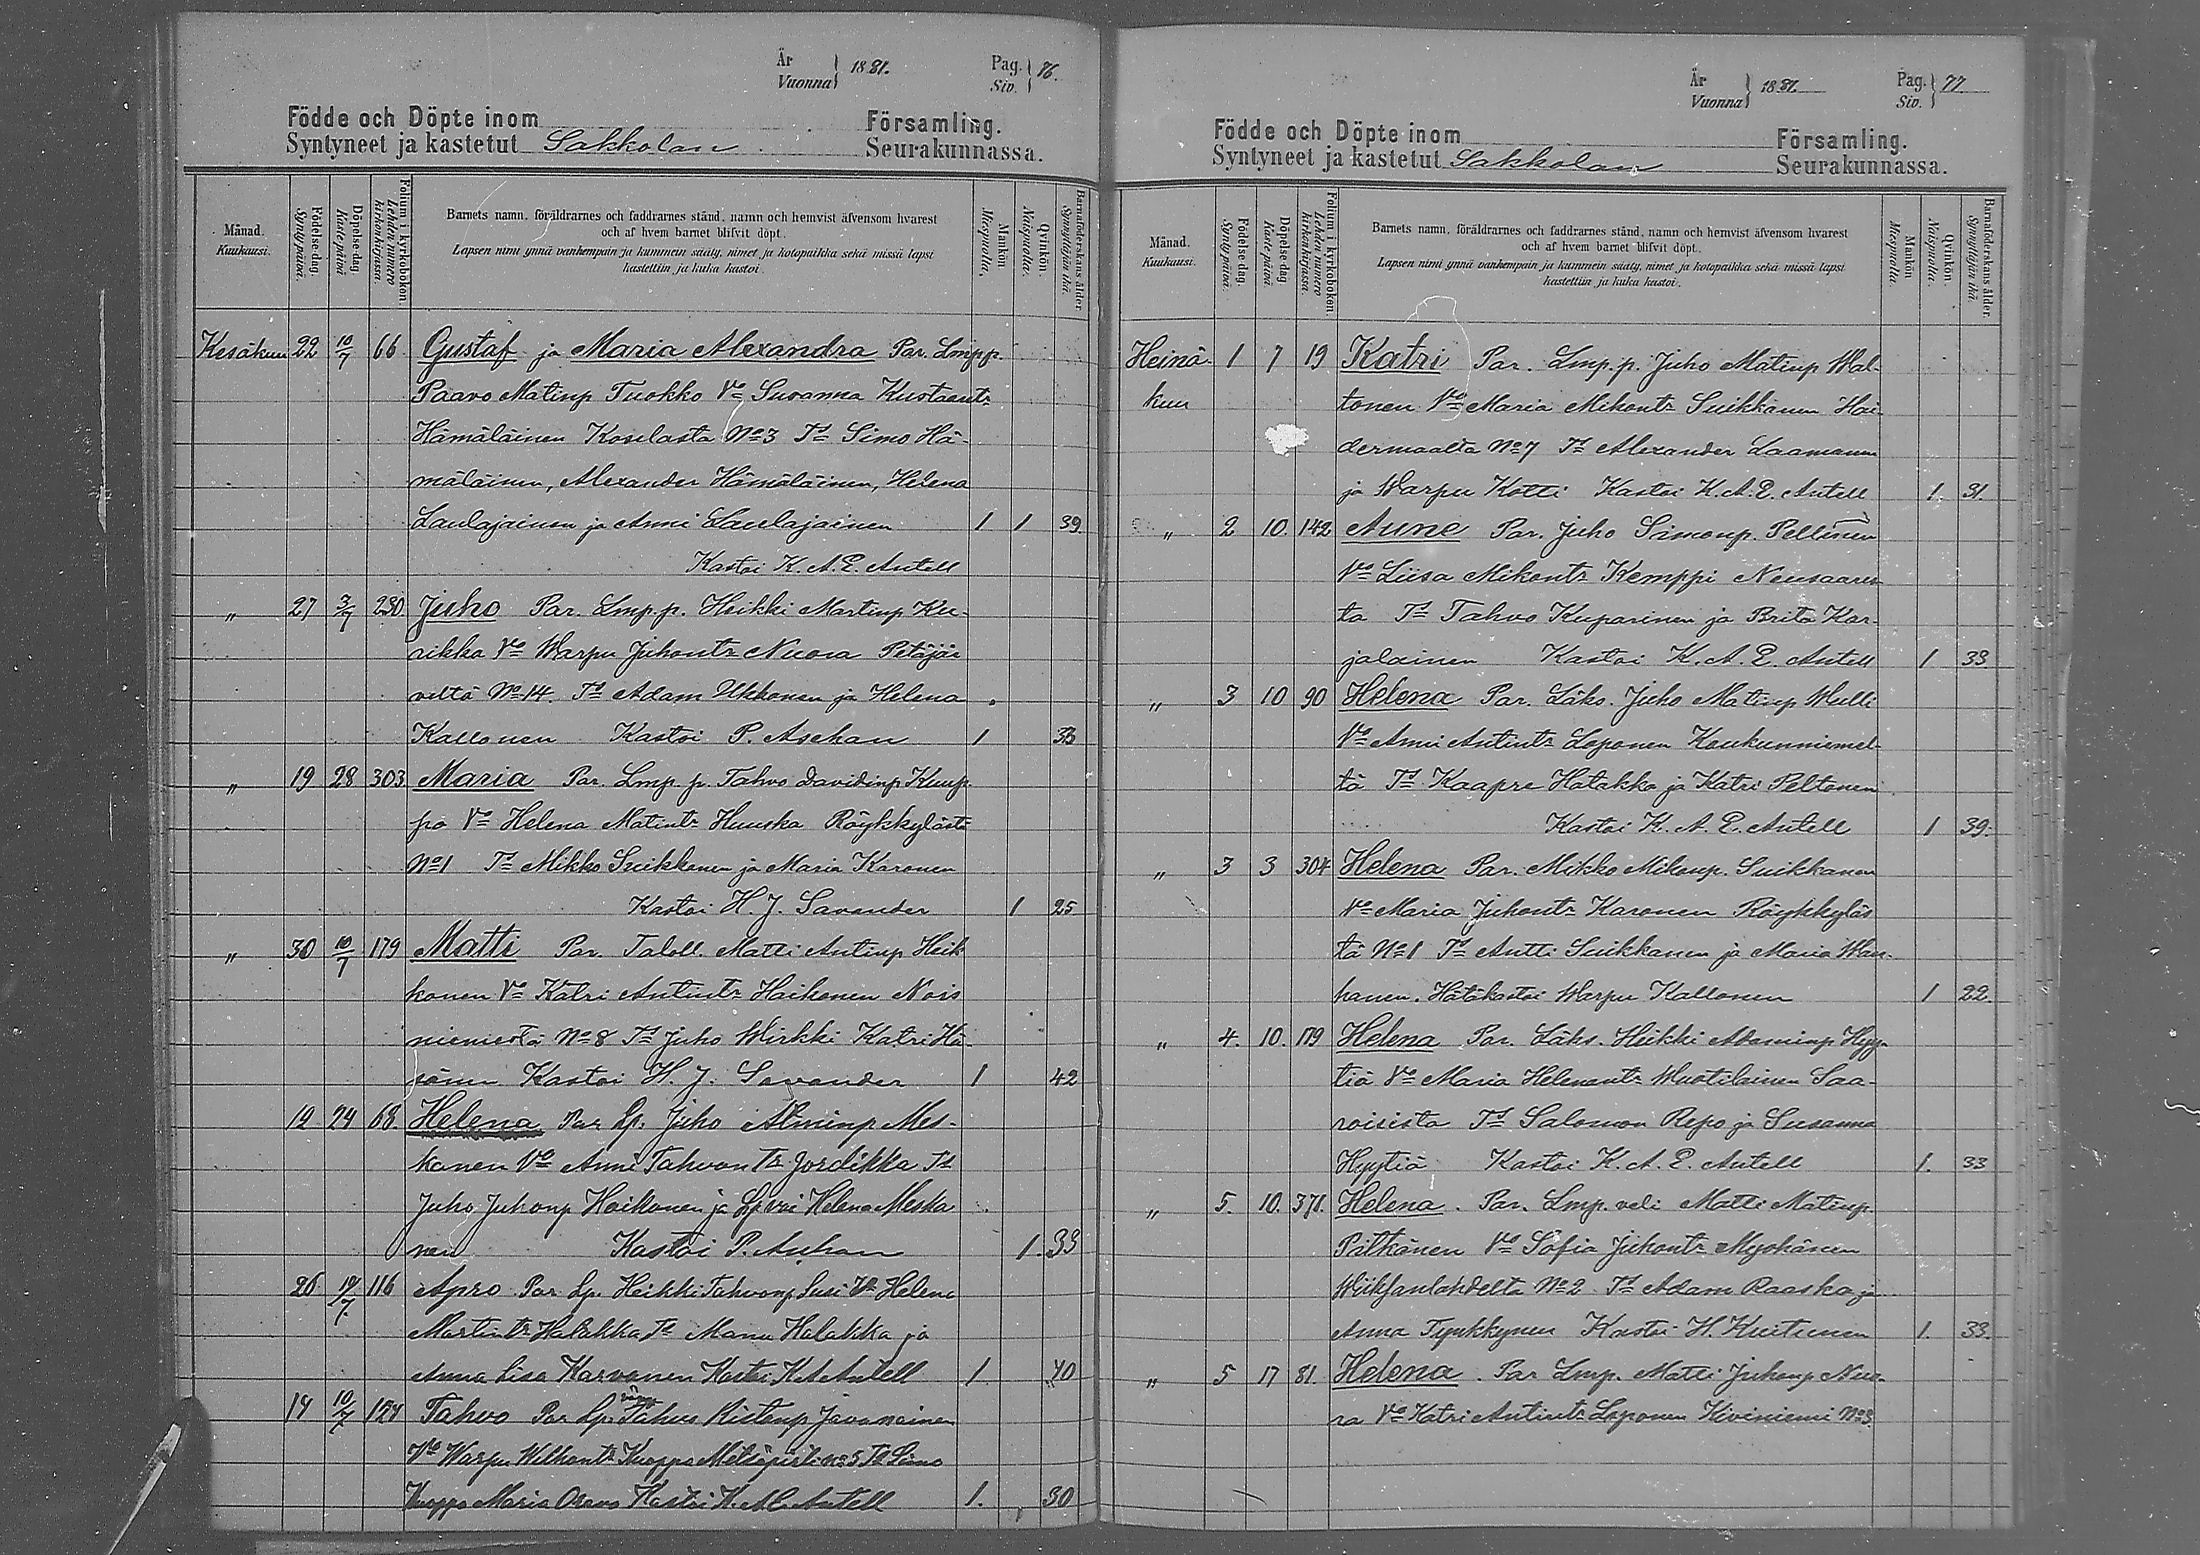 År
Vuonna 1881.
Pag.
Siv. 76.
Födde och Döpte inom Församling.
Syntyneet ja kastetut Sakkolan Seurakunnassa.
Månad.
Kuukausi.
Födelse-dag.
Syntypäivä.
Döpelse-dag.
Kastepäivä
Folium i kyrkoboken.
Lehden numero kirkonkirjassa.
Barnets namn, föräldrarnes och faddrarnes stånd, namn och hemvist äfvensom hvarest
och af hvem barnet blifvit döpt.
Lapsen nimi ynnä vanhempain ja kummein sääty, nimet ja kotopaikka sekä missä lapsi
kastettiin ja kuka kastoi.
Mankön
Miespuolia.
Qvinkön.
Naispuolia.
Barnaföderskans ålder.
Synnyttäjän ikä.
Kesäkuu 22 10/7 66 Gustaf ja Maria Alexandra Par. Lmp.p.
Paavo Matinp Tuokko Vo Susanna Kustaantr
Hämäläinen Koselasta No 3 Ts Simo Hä-
mäläinen, Alexander Hämäläinen, Helena
Laulajainen ja Anni Laulajainen 1 1 39.
Kastoi K. A. E. Antell
" 27 3/7 230 Juho Par. Lmp.p. Heikki Martinp Ku-
rikka Vo Warpu Juhontr Nuora Petäjär
veltä No 14. Ts Adam Ukkonen ja Helena
Kallonen Kastoi P. Aschan 1 33
" 19 28 303 Maria Par. Lmp. p. Tahvo Davidinp Kuup-
po Vo Helena Matintr Huuska Röykkylästä
No 1 Ts Mikko Suikkanen ja Maria Karonen
Kastoi H. J. Savander 1 25
" 30 10/7 179 Matti Par. Taloll. Matti Antinp Heik
konen Vo Katri Antintr Haikonen Nois
niemestä No 8 Ts Juho Wirkki Katri Hä-
sänen Kastoi H. J. Savander 1 42
19 24 68. Helena Par Lp. Juho Mes-
kanen Vo Anni Tahvontr Jordikka Ts
Juho Juhonp Haikonen ja Lp vai Helena Meska
nen Kastoi P. Aschan 1. 33
26 116 Apro Par Lp. Heikki Tahvonp Susi Vo Helena
Martintr Halakka, Ts Manu Halakka ja
Anna Lisa Karvonen Kastoi K A Antell 1 40
14 10/7 154 Tahvo Par Lp. Tahvo Ristonp Javanainen
Vo Warpu Wilhontr Kuoppa Metsäpirti no 5 Ts Simo
Kuoppa Maria Orava Kastoi K. A E. Antell 1. 30
År
Vuonna 1881.
Pag.
Siv. 77.
Födde och Döpte inom Församling.
Syntyneet ja kastetut Sakkolan Seurakunnassa.
Månad.
Kuukausi.
Födelse-dag.
Syntypäivä.
Döpelse-dag
Kastepäivä
Folium i kyrkoboken
Lehden numero kirkonkirjassa.
Barnets namn, föräldrarnes och faddrarnes stånd, namn och hemvist äfvensom hvarest
och af hvem barnet blifvit döpt.
Lapsen nimi ynnä vanhempain ja kummein sääty, nimet ja kotopaikka sekä missä lapsi
kastettiin ja kuka kastoi.
Mankön
Miespuolia.
Qvinkön.
Naispuolia.
Barnaföderskans ålder.
Synnyttäjän ikä.
Heinä- 1 7 19 Katri Par. Lmp.p. Juho Matinp Wal-
kuu tonen Vo Maria Mikontr Suikkanen Hai-
dermaalta No 7 Ts Alexander Laamanen
ja Warpu Kotti Kastoi K. A. E. Antell 1. 31.
" 2 10. 142 Aune Par. Juho Simonp. Pellinen
Vo Liisa Mikontr Kemppi Neusaares-
ta Ts Tahvo Kuparinen ja Brita Kar-
jalainen Kastoi K. A. E. Antell 1 33
" 3 10 90 Helena Par. Läks. Juho Matinp Wulli
Vo Anni Antintr Loponen Koukunniemel-
tä Ts Kaapre Hatakka ja Katri Peltonen
Kastoi K. A. E. Antell 1 39.
" 3 3 304 Helena Par. Mikko Mikonp. Suikkanen
Vo Maria Juhontr Karonen Röykkyläs
tä No 1 Ts Antti Suikkanen ja Maria Wan-
hanen. Hätäkastoi Warpu Kallonen 1 22.
" 4. 10. 179 Helena Par. Läks. Heikki Adaminp Hyy-
tiä Vo Maria Helenantr Wuotilainen Saa-
roisista Ts Salomon Repo ja Susanna
Hyytiä Kastoi K. A. E. Antell 1. 33
" 5. 10. 371. Helena. Par. Lmp. veli Matti Matinp
Pitkänen Vo Sofia Juhontr Myöhänen
Wiiksanlahdelta No 2 Ts Adam Raaska ja
Anna Tynkkynen Kastoi H. Kuitunen 1. 33.
" 5 17 81. Helena. Par Lmp. Matti Juhonp Nuo-
ra Vo Katri Antintr Loponen Kiviniemi No 3.